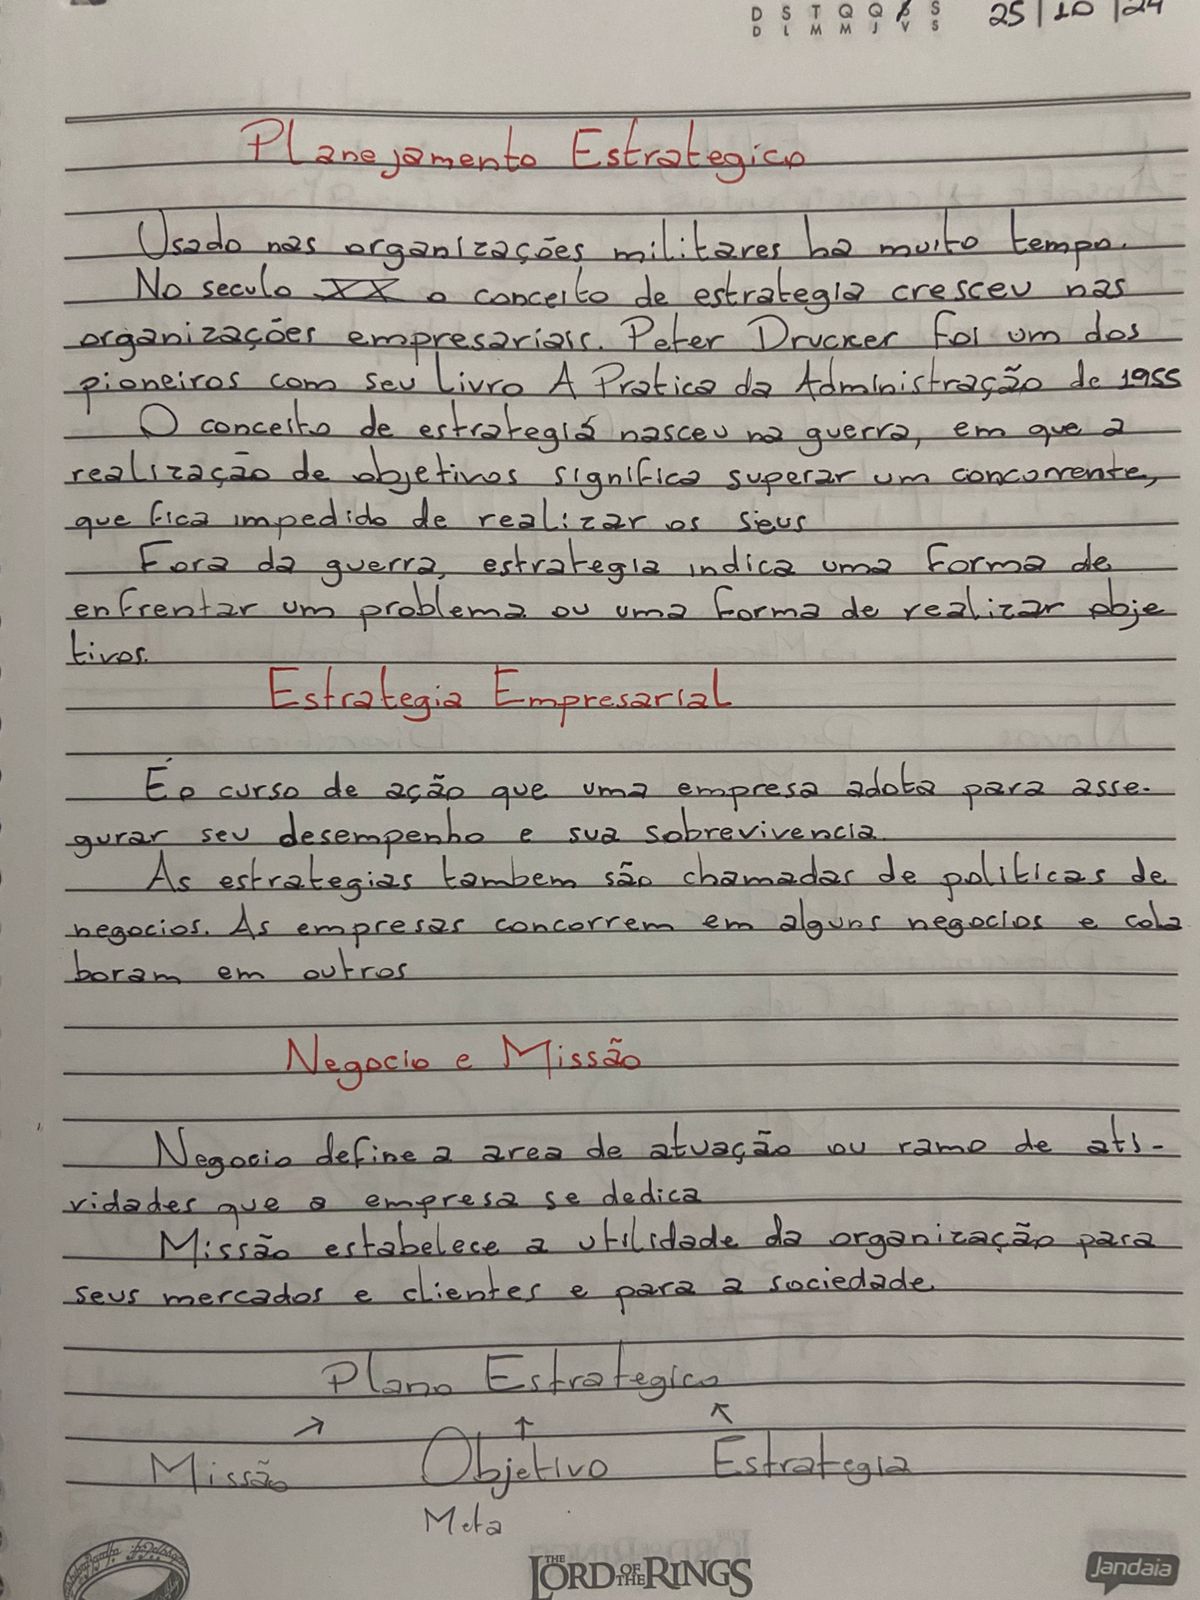 D S T Q Q S S
D L M M J V S
25/10/24
Planejamento Estrategico
Usado nas organizações militares ha muito tempo.
No seculo XX o conceito de estrategia cresceu nas
organizações empresariais. Peter Drucker foi um dos
pioneiros com seu livro A Pratica da Administração de 1955
O conceito de estrategiá nasceu na guerra, em que a
realização de objetivos significa superar um concorrente,
que fica impedido de realizar os seus
Fora da guerra, estrategia indica uma forma de
enfrentar um problema ou uma forma de realizar obje
tivos.
Estrategia Empresarial
É o curso de ação que uma empresa adota para asse-
gurar seu desempenho e sua sobrevivencia.
As estrategias tambem são chamadas de politicas de
negocios. As empresas concorrem em alguns negocios e cola
boram em outros
Negocio e Missão
Negocio define a area de atuação ou ramo de ati-
vidades que a empresa se dedica
Missão estabelece a utilidade da organização para
seus mercados e clientes e para a sociedade.
Plano Estrategico
↗ ↑ ↖
Missão Objetivo Estrategia
Meta
THE LORD OF THE RINGS
Jandaia